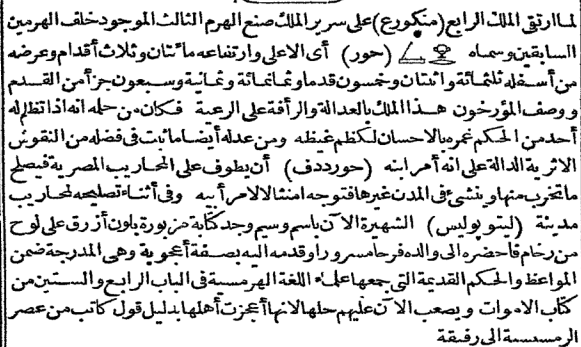 لما ارتقى الملك الرابع (منكورع) على سرير الملك صنع الهرم الثالث الموجود خلف الهرمين
السابقين وسماه (حور) أى الاعلى وارتفاعه مائتان وثلاث أقدام وعرضه
من أسفله ثلثمائة واثنتان وخمسون قدما وثمانمائة وثمانية وسبعون جزأ من القدم
ووصف المؤرخون هذا الملك بالعدالة والرأفة على الرعية فكان من حلمه انه اذا تظلم له
أحد من الحكم غمره بالاحسان لكظم غيظه ومن عدله أيضا ما ثبت فى فضله من النقوش
الاثرية الدالة على انه أمر ابنه (حورددف) أن يطوف على المحاريب المصرية فيصلح
ما تخرب منها وينشئ فى المدن غيرها فتوجه امتثالا لامر أبيه وفى أثناء تصليحه لمحاريب
مدينة (ليتوبوليس) الشهيرة الآن باسم وسيم وجد كتابة مزبورة بلون أزرق على لوح
من رخام فأحضره الى والده فرحا مسرورا وقدمه اليه بصفة أعجوبة وهى المدرجة ضمن
المواعظ والحكم القديمة التى جمعها علماء اللغة الهرمسية فى الباب الرابع والستين من
كتاب الاموات ويصعب الآن عليهم حلها لانها أعجزت أهلها بدليل قول كاتب من عصر
الرمسسية الى رفيقه